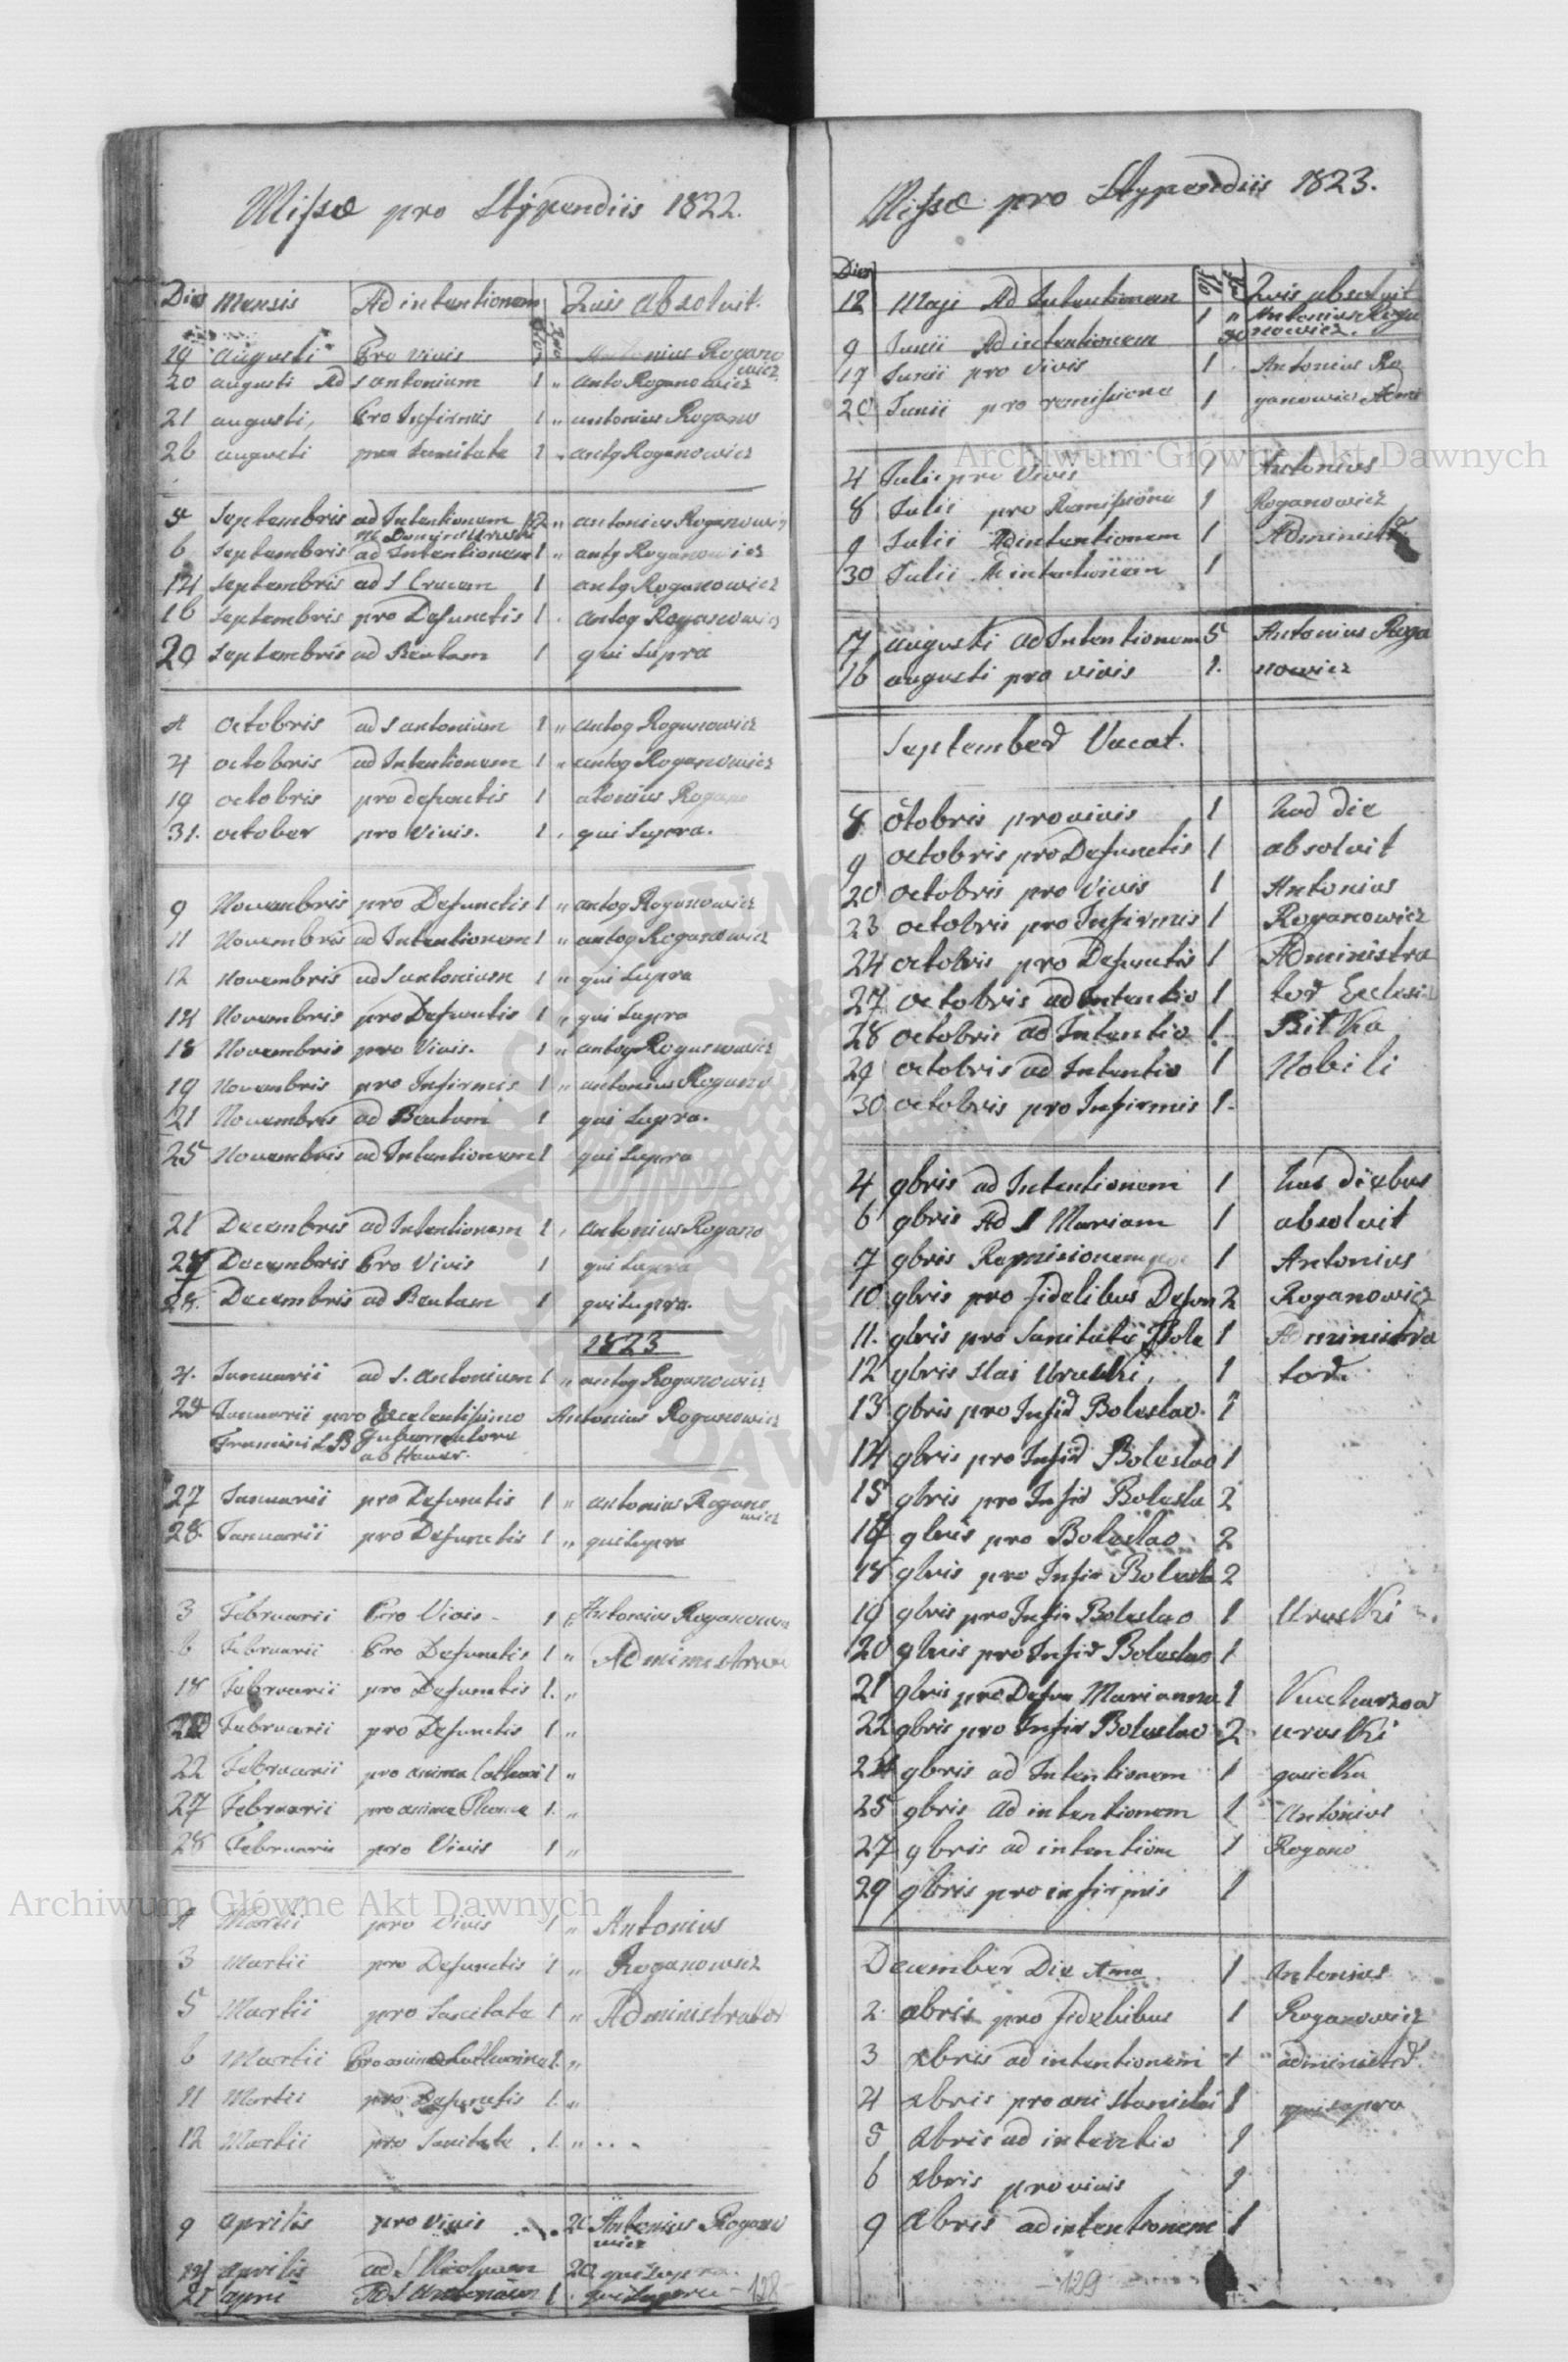 Missæ pro Stypendiis 1822.
Dies Mensis Ad intentionem Quis absolvit.
19 augusti Pro vivis Antonius Rogano
wicz
20 augusti Ad S antonium 1 " anto Roganowicz
21 augusti, Pro Infirmis 1 " antonius Rogano
26 augusti pro Sanitate 1 " antg Roganowicz
5 Septembris ad Intentionem 12 " antonius Roganowicz
6 Septembris ad Intentionem 1 " antg Roganowicz
14 Septembris ad S Crucem 1 antg Roganowicz
16 Septembris pro Defunctis 1 antog Roganowicz
20 Septembris ad Beatam 1 qui Supra
octobris ad S antonium 1 " antog Roganowicz
4 octobris ad Intentionem 1 " antog Roganowicz
19 octobris pro defunctis 1 atonius Rogano
31. october pro Vivis. 1 qui Supra.
9 Novembris pro Defunctis 1 " antog Roganowicz
11 Novembris ad Intentionem 1 " antog Roganowicz
12 Novembris ad S antonium 1 " qui Supra
14 Novembris pro Defunctis 1 " qui Supra
18 Novembris pro Vivis. 1 " antog Roganowicz
19 Novembris pro Infirmis 1 " antonius Rogano
21 Novembris ad Beatam 1 qui Supra.
25 Novembris ad Intentionem 1 qui Supra
21 Decembris ad Intentionem 1 antonius Rogano
27 Decembris Pro Vivis 1 qui Supra
28. Decembris ad Beatam 1 qui Supra.
1823
4. Januarii ad S. Antonium 1 " antog Roganowicz
Januarii pro Excelentissimo Antonius Roganowicz
Francisci L B Gubernatore
ab Hauer.
27 Januarii pro Defunctis 1 " antonius Rogano
wicz
28. Januarii pro Defunctis 1 " qui Supra
3 Februarii Pro Vivis 1 " Antonius Roganowicz
6 Februarii Pro Defunctis 1 " Administrator
18 Februarii pro Defunctis 1. "
Februarii pro Defunctis 1 "
22 Februarii pro anima Cathari 1 "
27 Februarii pro anima 1. "
28 Februarii pro Vivis 1 "
Martii pro Vivis 1 " Antonius
3 Martii pro Defunctis 1 " Roganowicz
5 Martii pro Sanitate 1 " Administrator
6 Martii Pro anima Catharina 1. "
11 Martii pro Defunctis 1. "
12 Martii pro Sanitate 1. " . . .
9 aprilis pro vivis 20 Antonius Rogano
wicz
aprilis ad S Nicolaum 20 qui Supra.
21 april Ad S Antonium 1 qui Supra
- 128 -
Missæ pro Stypendiis 1823.
Dies
12 Maji Ad Intentionem Quis absolvit
1 " Antonius Roga
9 Junii Ad intentionem nowicz.
17 Junii pro vivis 1 Antonius Ro
20 Junii pro remissione 1 ganowicz Admi
4 Julii pro Vivis 1 Antonius
8 Julii pro Remissione 1 Roganowicz
9 Julii Ad intentionem 1 Administr
30 Julii Ad intentionem 1
17 augusti ad Intentionem 5 Antonius Roga
16 augusti pro vivis 1. nowicz
September Vacat.
8 otobris pro vivis 1 hod die
9 octobris pro Defunctis 1 absolvit
20 octobris pro Vivis 1 Antonius
23 octobris pro Infirmis 1 Roganowicz
24 octobris pro Defunctis 1 Administra
27 octobris ad Intentio 1 tor Eclesi
28 octobris ad Intentio 1. Bitka
29 octobris ad Intentio 1 Nobili
30 octobris pro Infirmis 1.
4 9bris ad Intentionem 1 has diebus
6 9bris Ad S Mariam 1 absolvit
7 9bris Remisionem 1 Antonius
10 9bris pro fidelibus Defun 2 Roganowicz
11. 9bris pro Sanitate Bole 1 Administra
12 9bris Stas Uruski, 1 tor.
13 9bris pro Infir Boleslao. 1
14 9bris pro Infir Boleslao 1
15 9bris pro Infir Bolesla 2
9bris pro Boleslao 2
18 9bris pro Infir Bolesla 2
19 9bris pro Infir Boleslao 1 Uruski
20 9bris pro Infir Boleslao 1
21 9bris pro Defun Marianna 1
22 9bris pro Infir Boleslao 2 uruski
24 9bris ad Intentionem 1
25 9bris ad intentionem 1 Antonius
27 9bris ad intention 1 Rogano
29 9bris pro infirmis 1
December Die 1ma 1 Antonius
2 xbris pro fidelibus 1 Roganowicz
3 xbris ad intentionem 1 administr
4 xbris pro ani Stanislai 1 qui supra
5 xbris ad intentio 1
6 xbris pro vivis 1
9 xbris ad intentionem 1
- 129 -
Archiwum Główne Akt Dawnych
Archiwum Główne Akt Dawnych